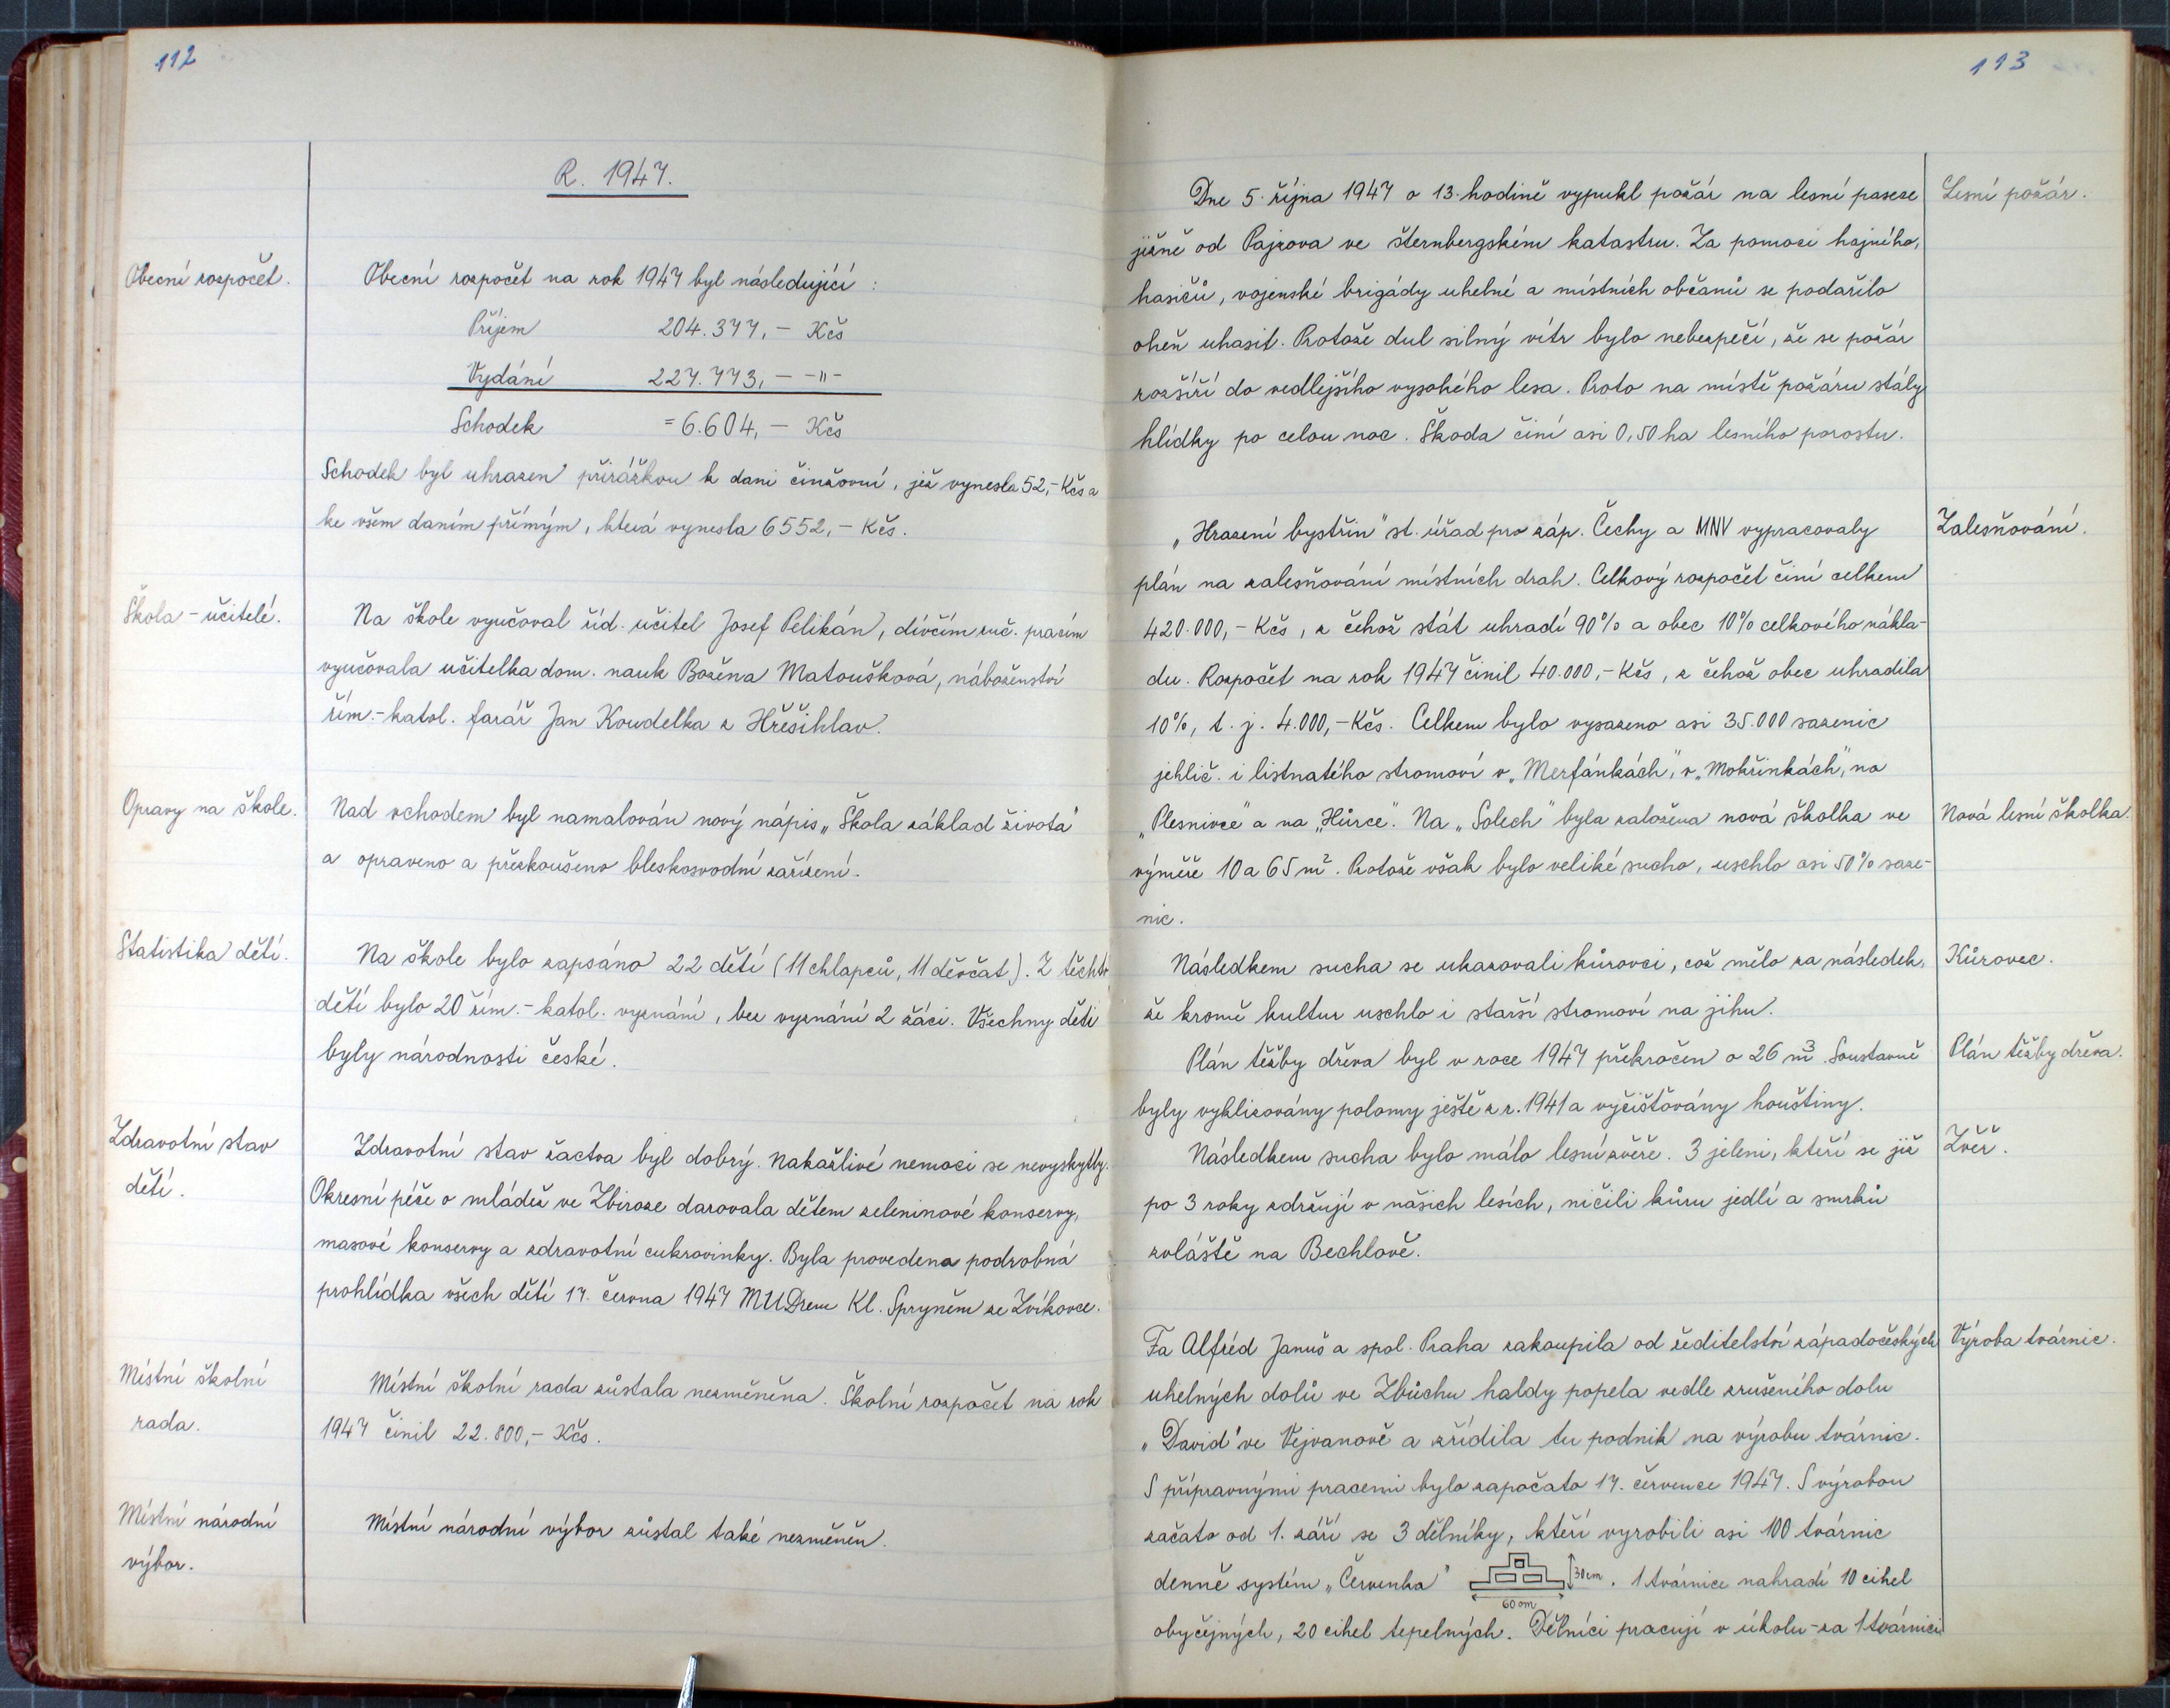 112
R. 1947.
Obecní rozpočet.
Obecní rozpočet na rok 1947 byl následující :
Příjem 204.377,- Kčs
Vydání 227.773,- -"-
Schodek = 6.604,- Kčs
Schodek byl uhrazen přirážkou k dani činžovní, jež vynesla 52,- Kčs a
ke všem daním přímým, která vynesla 6552,- Kčs.
Škola - učitelé.
Na škole vyučoval říd. učitel Josef Pelikán, dívčím ruč. pracím
vyučovala učitelka dom. nauk Božena Matoušková, náboženství
řím.-katol. farář Jan Koudelka z Hřešihlav.
Opravy na škole.
Nad vchodem byl namalován nový nápis „Škola základ života"
a opraveno a přezkoušeno bleskosvodní zařízení.
Statistika dětí.
Na škole bylo zapsáno 22 dětí (11 chlapců, 11 děvčat). Z těchto
dětí bylo 20 řím.-katol. vyznání, bez vyznání 2 žáci. Všechny děti
byly národnosti české.
Zdravotní stav
dětí.
Zdravotní stav žactva byl dobrý. Nakažlivé nemoci se nevyskytly.
Okresní péče o mládež ve Zbiroze darovala dětem zeleninové konservy,
masové konservy a zdravotní cukrovinky. Byla provedena podrobná
prohlídka všech dětí 17. června 1947 MUDrem Kl. Spryněm ze Zvíkovce.
Místní školní
rada.
Místní školní rada zůstala nezměněna. Školní rozpočet na rok
1947 činil 22.800,- Kčs.
Místní národní
výbor.
Místní národní výbor zůstal také nezměněn.
113
Dne 5. října 1947 o 13. hodině vypukl požár na lesní pasece
Lesní požár.
jižně od Pajzova ve šternbergském katastru. Za pomoci hajného,
hasičů, vojenské brigády uhelné a místních občanů se podařilo
oheň uhasit. Protože dul silný vítr bylo nebezpečí, že se požár
rozšíří do vedlejšího vysokého lesa. Proto na místě požáru stály
hlídky po celou noc. Škoda činí asi 0,50 ha lesního porostu.
„Hrazení bystřin" st. úřad pro záp. Čechy a MNV vypracovaly
Zalesňování.
plán na zalesňování místních drah. Celkový rozpočet činí celkem
420.000,- Kčs, z čehož stát uhradí 90% a obec 10% celkového nákla-
du. Rozpočet na rok 1947 činil 40.000,- Kčs, z čehož obec uhradila
10%, t. j. 4.000,- Kčs. Celkem bylo vysazeno asi 35.000 sazenic
jehlič. i listnatého stromoví v „Merfánkách", v „Mokřinkách", na
„Plesnivce" a na „Hůrce". Na „Solech" byla založena nová školka ve
Nová lesní školka.
výměře 10 a 65 m². Protože však bylo veliké sucho, uschlo asi 50% saze-
nic.
Následkem sucha se ukazovali kůrovci, což mělo za následek,
Kůrovec.
že kromě kultur uschlo i starší stromoví na jihu.
Plán těžby dřeva byl v roce 1947 překročen o 26 m³. Soustavně
Plán těžby dřeva.
byly vyklizovány polomy ještě z r. 1941 a vyčišťovány houštiny.
Následkem sucha bylo málo lesní zvěře. 3 jeleni, kteří se již
Zvěř.
po 3 roky zdržují v našich lesích, ničili kůru jedlí a smrků
zvláště na Bechlově.
Fa Alfréd Januš a spol. Praha zakoupila od ředitelství západočeských
Výroba tvárnic.
uhelných dolů ve Zbůchu haldy popela vedle zrušeného dolu
„David" ve Vejvanově a zřídila tu podnik na výrobu tvárnic.
S přípravnými pracemi bylo započato 17. července 1947. S výrobou
začato od 1. září se 3 dělníky, kteří vyrobili asi 100 tvárnic
denně systém „Červenka" 30 cm. 1 tvárnice nahradí 10 cihel
60 cm
obyčejných, 20 cihel tepelných. Dělníci pracují v úkolu - za 1 tvárnici